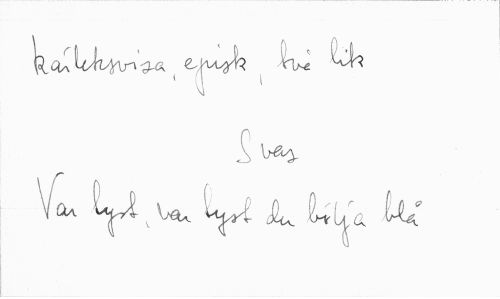 kärleksvisa, episk, två lik
Svas
Var tyst, var tyst du bölja blå